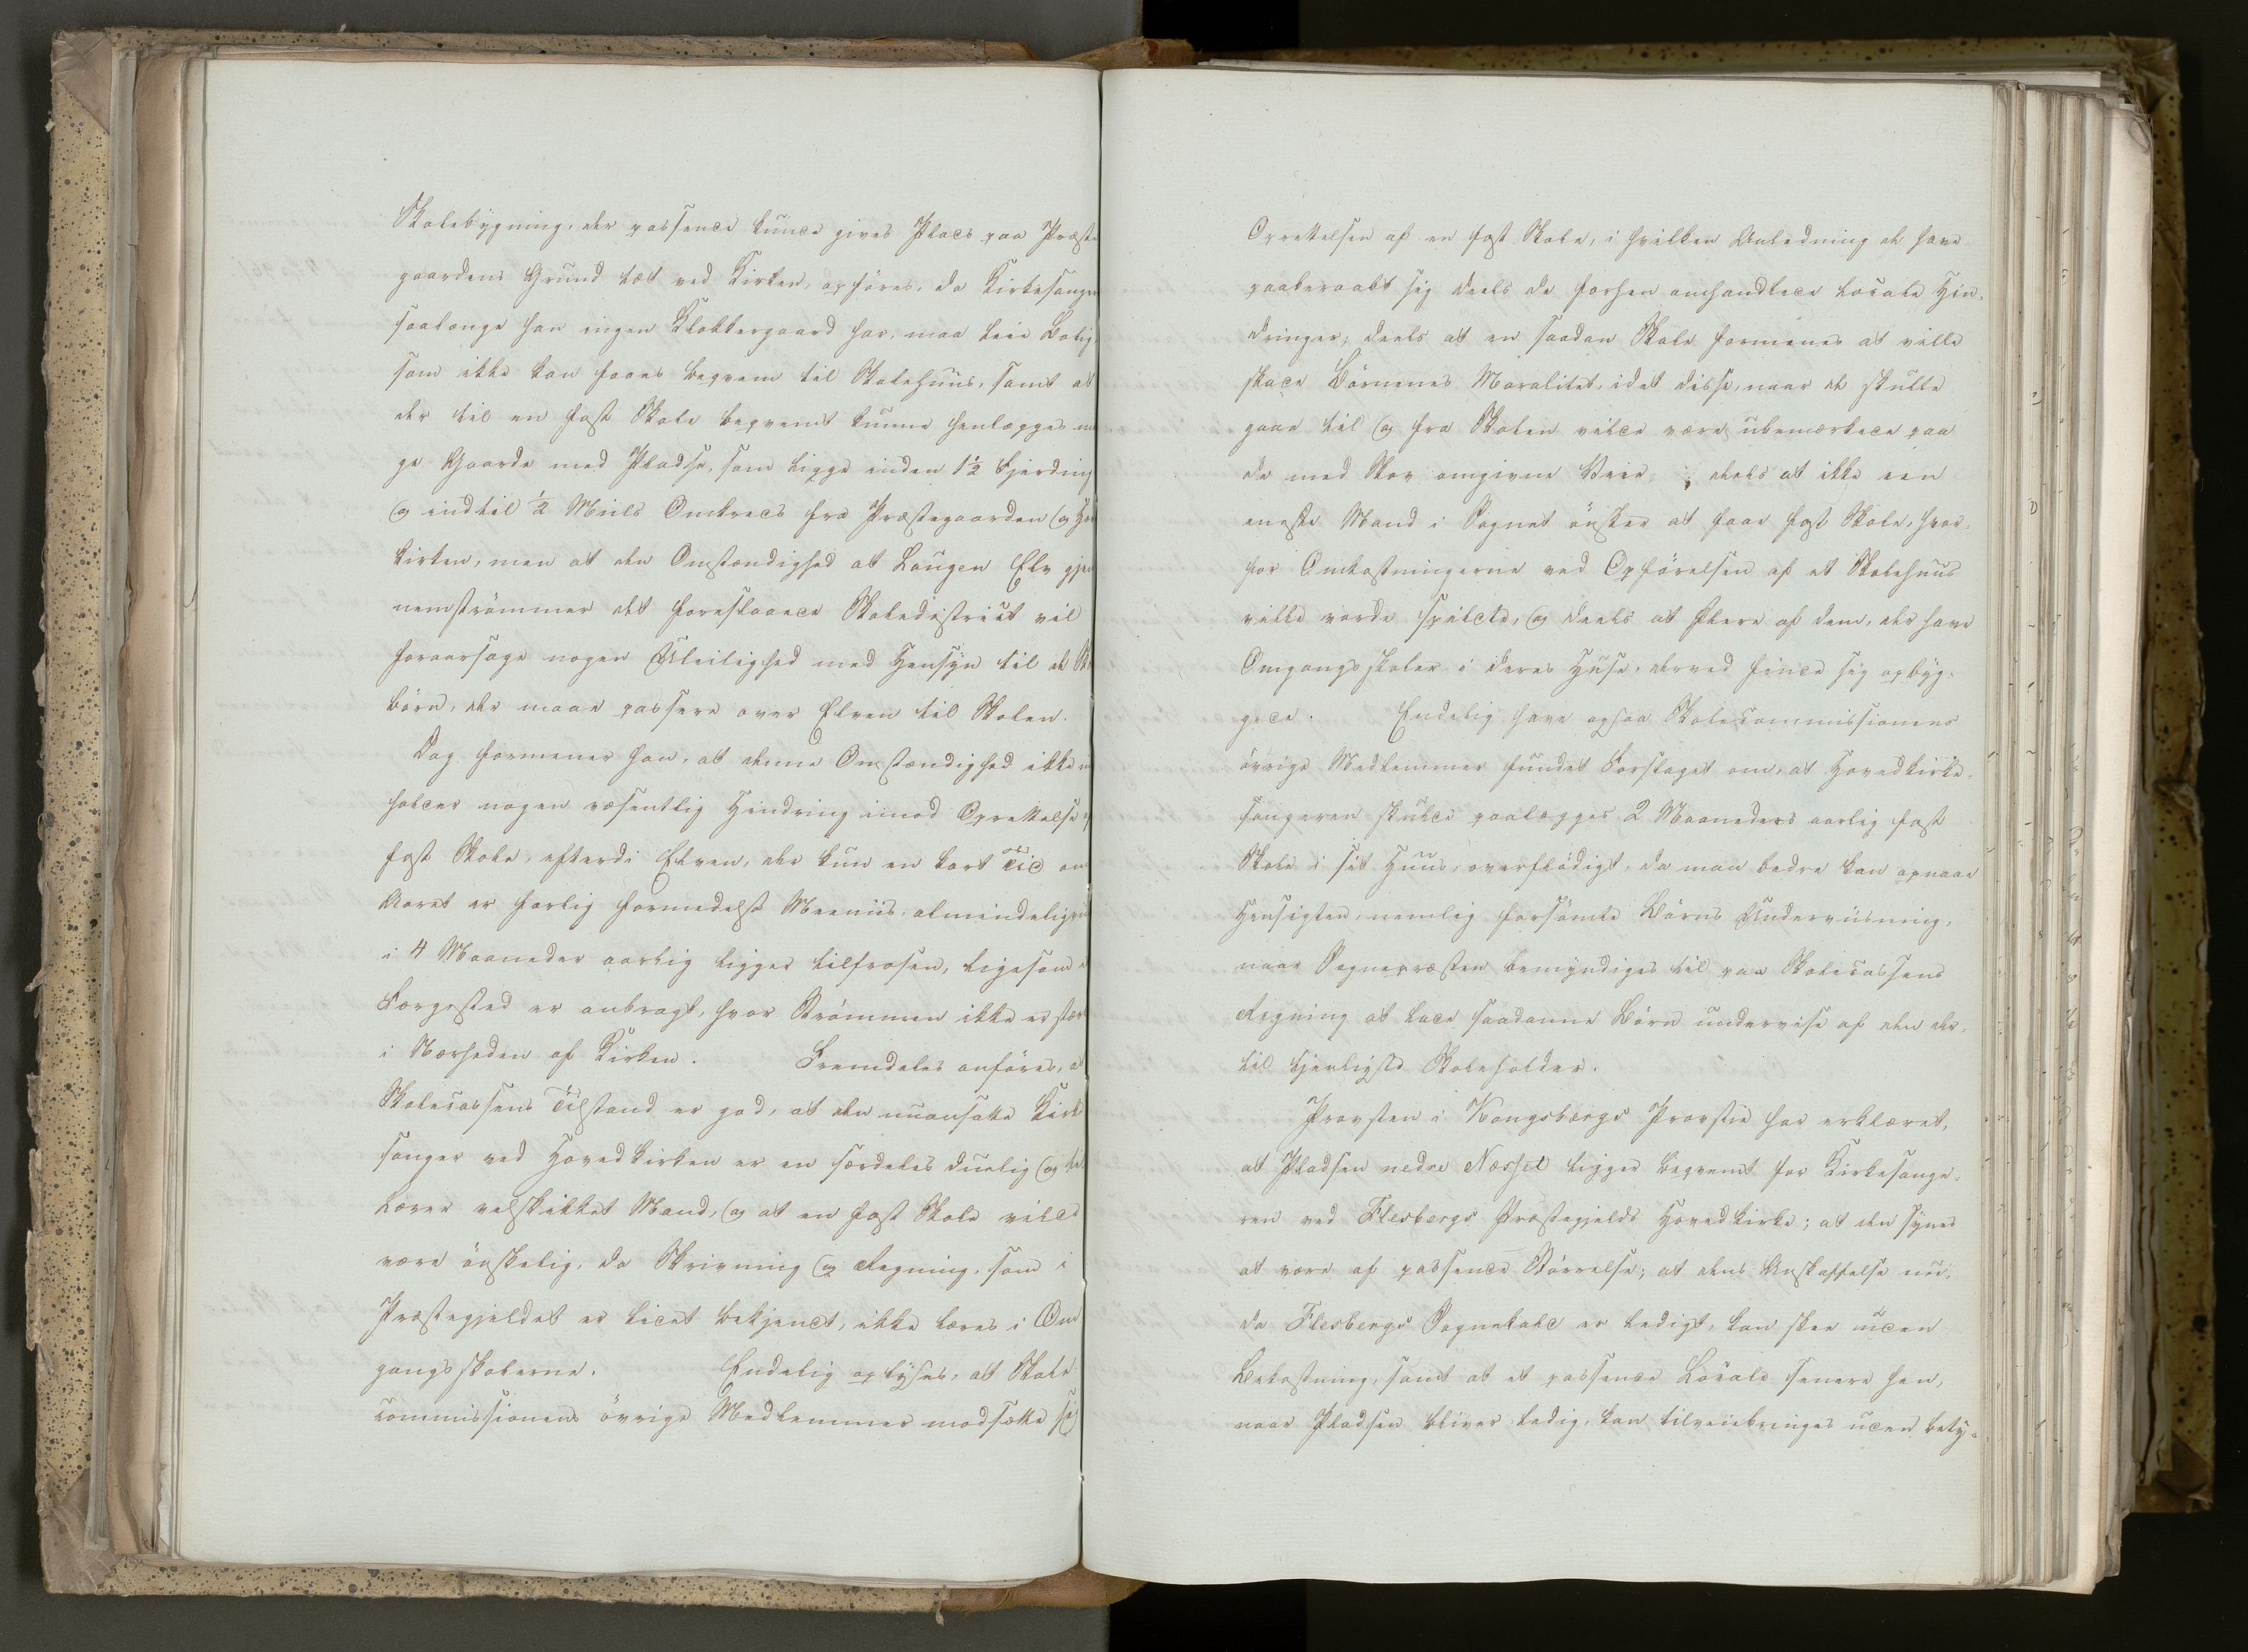 Skolebygning, der passende kunde gives Plads paa Præste
gaardens Grund tæt ved Kirken, opföres, da Kirkesanger
saalænge han ingen Klokkergaard har, maa leie Bolig
som ikke kan faaes beqvem til Skolehuus, samt at
der til en fast Skole beqvemt kunne henlægges
ge Gaarde med Pladse, som ligge inden 1½ Fjerding
og indtil ½ Miils Omkreds fra Præstegaarden og
kirken, men at den Omstændighed at Lougen Elv gjen
nemströmmer det foreslaaede Skoledistrict vil
foraarsage nogen Uleilighed med Hensyn til de
börn, der maae passere over Elven til Skolen.
Dog formener han, at denne Omstændighed ikke
holder nogen væsentlig Hindring imod Oprettelse
fast Skole, efterdi Elven, der kun en kort Tid om
Aaret er farlig formedelst Meeniis, almindeligviis
i 4 Maaneder aarlig ligger tilfrosen, ligesom
Færgested er anbragt, hvor Strömmen ikke er stærk
i Nærheden af Kirken. Fremdeles anföres, at
Skolecassens Tilstand er god, at den nuansatte Kirke
sanger ved Hovedkirken er en særdeles duelig og til
Lærer velskikket Mand, og at en fast Skole vilde
være önskelig, da Skrivning og Regning, som i
Præstegjeldet er lidet bekjendt, ikke læres i Om
gangsskolerne. Endelig oplyses, at Skole
commissionens övrige Medlemmer modsætte sig
Oprettelsen af en fast Skole, i hvilken Anledning de have
paaberaabt sig deels de forhen omhandlede locale Hin-
dringer, deels at en saadan Skole formenes at ville
skade Börnenes Moralitet, idet disse, naar de skulle
gaae til og fra Skolen vilde være ubemærkede paa
de med Skov omgivne Veie; deels at ikke een
eneste Mand i Sognet önsker at faae fast Skole, hvor-
for Omkostningerne ved Opförelsen af et Skolehuus
ville vorde spildte, og deels at Flere af dem, der have
Omgangsskoler i deres Huse, derved finde sig opbyg-
gede. Endelig have ogsaa Skolecommissionens
övrige Medlemmer fundet Forslaget om, at Hovedkirke-
sangeren skulde paalægges 2 Maaneders aarlig fast
Skole i sit Huus, overflödigt, da man bedre kan opnaae
Hensigten, nemlig forsömte Börns Underviisning,
naar Sognepræsten bemyndiges til paa Skolecassens
Regning at lade saadanne Börn undervise af den der-
til tjenligste Skoleholder.
Provsten i Kongsbergs Provstie har erklæret,
at Pladsen nedre Næsset ligger beqvemt for Kirkesange-
ren ved Flesbergs Præstegjelds Hovedkirke; at den synes
at være af passende Störrelse; at dens Anskaffelse nu,
da Flesbergs Sognekald er ledigt, kan skee uden
Bekostning, samt at et passende Locale senere hen,
naar Pladsen bliver ledig, kan tilveiebringes uden bety-